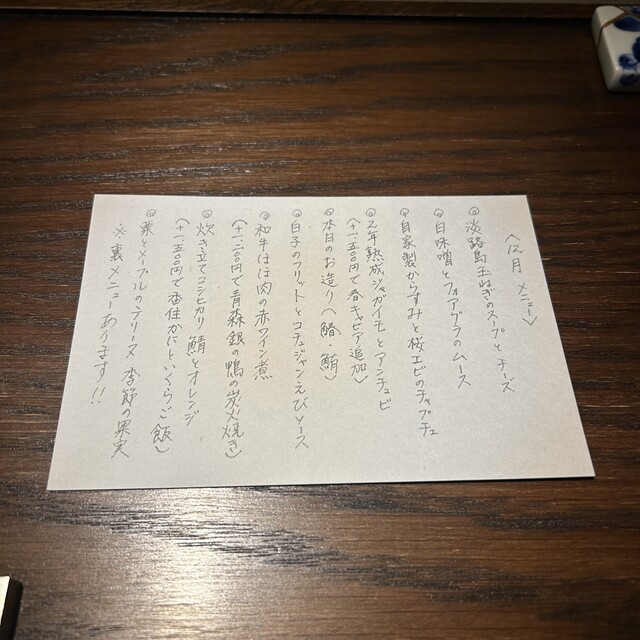 〈12月 メニュー〉
◎淡路島玉ねぎのスープとチーズ
◎白味噌とフォアグラのムース
◎自家製からすみと桜エビのチャプチェ
◎2年熟成ジャガイモとアンチョビ
(+一、五〇〇円で春キャビア追加)
◎本日のお造り(鰆・鮪)
◎白子のフリットとコチュジャンえびソース
◎和牛ほほ肉の赤ワイン煮
(+一、二〇〇円で青森銀の鴨の炭火焼き)
◎炊き立てコシヒカリ 鯖とオレンジ
(+一、五〇〇円で香住かにといくらご飯)
◎栗とメープルのテリーヌ 季節の果実
※裏メニューあります!!